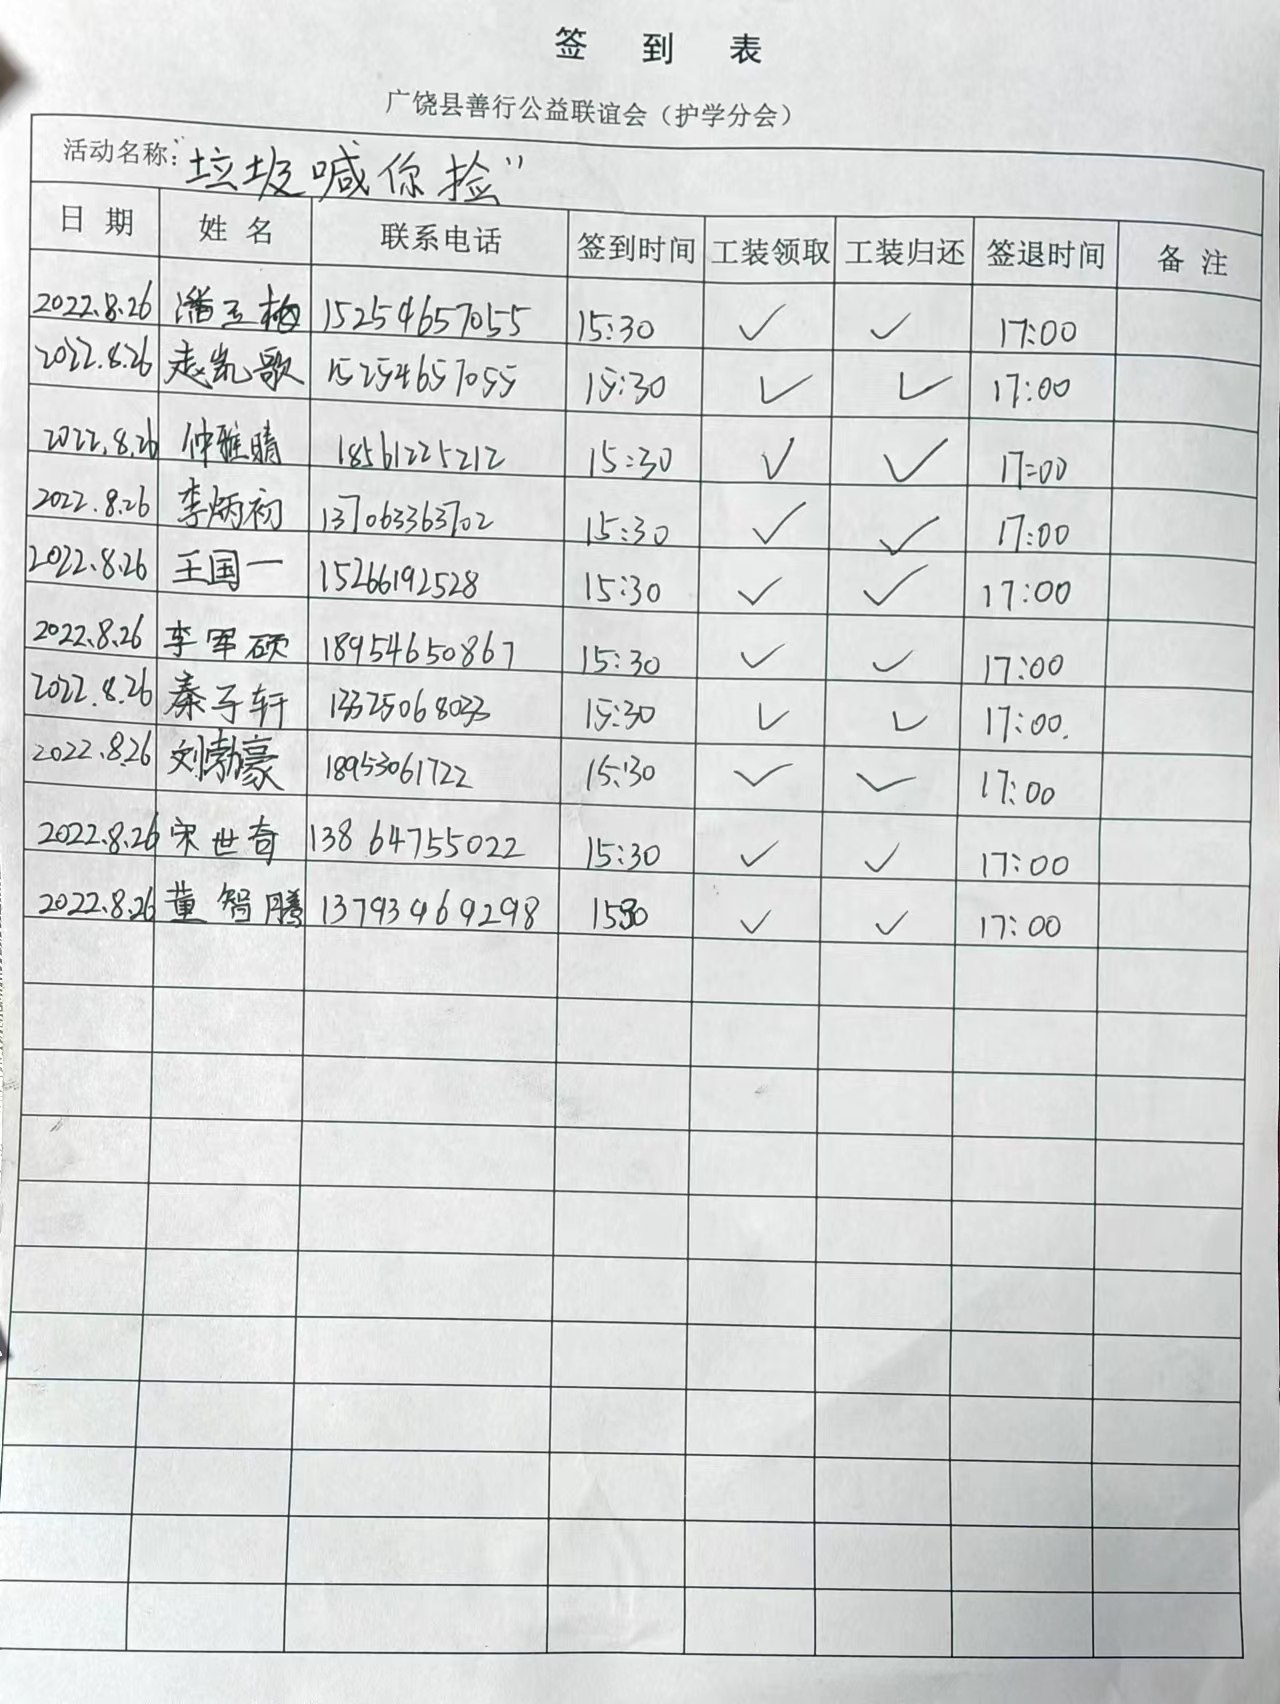 签 到 表
广饶县善行公益联谊会（护学分会）
活动名称："垃圾喊你捡"
日 期 姓 名 联系电话 签到时间 工装领取 工装归还 签退时间 备 注
2022.8.26 潘玉梅 15254657055 15:30 ✓ ✓ 17:00
2022.8.26 赵凯歌 15254657055 15:30 ✓ ✓ 17:00
2022.8.26 仲雅晴 18561225212 15:30 ✓ ✓ 17:00
2022.8.26 李炳初 137063363702 15:30 ✓ ✓ 17:00
2022.8.26 王国一 15266192528 15:30 ✓ ✓ 17:00
2022.8.26 李军硕 18954650867 15:30 ✓ ✓ 17:00
2022.8.26 秦子轩 13325068033 15:30 ✓ ✓ 17:00.
2022.8.26 刘勃豪 18953061722 15:30 ✓ ✓ 17:00
2022.8.26 宋世奇 13864755022 15:30 ✓ ✓ 17:00
2022.8.26 董智腾 13793469298 1530 ✓ ✓ 17:00